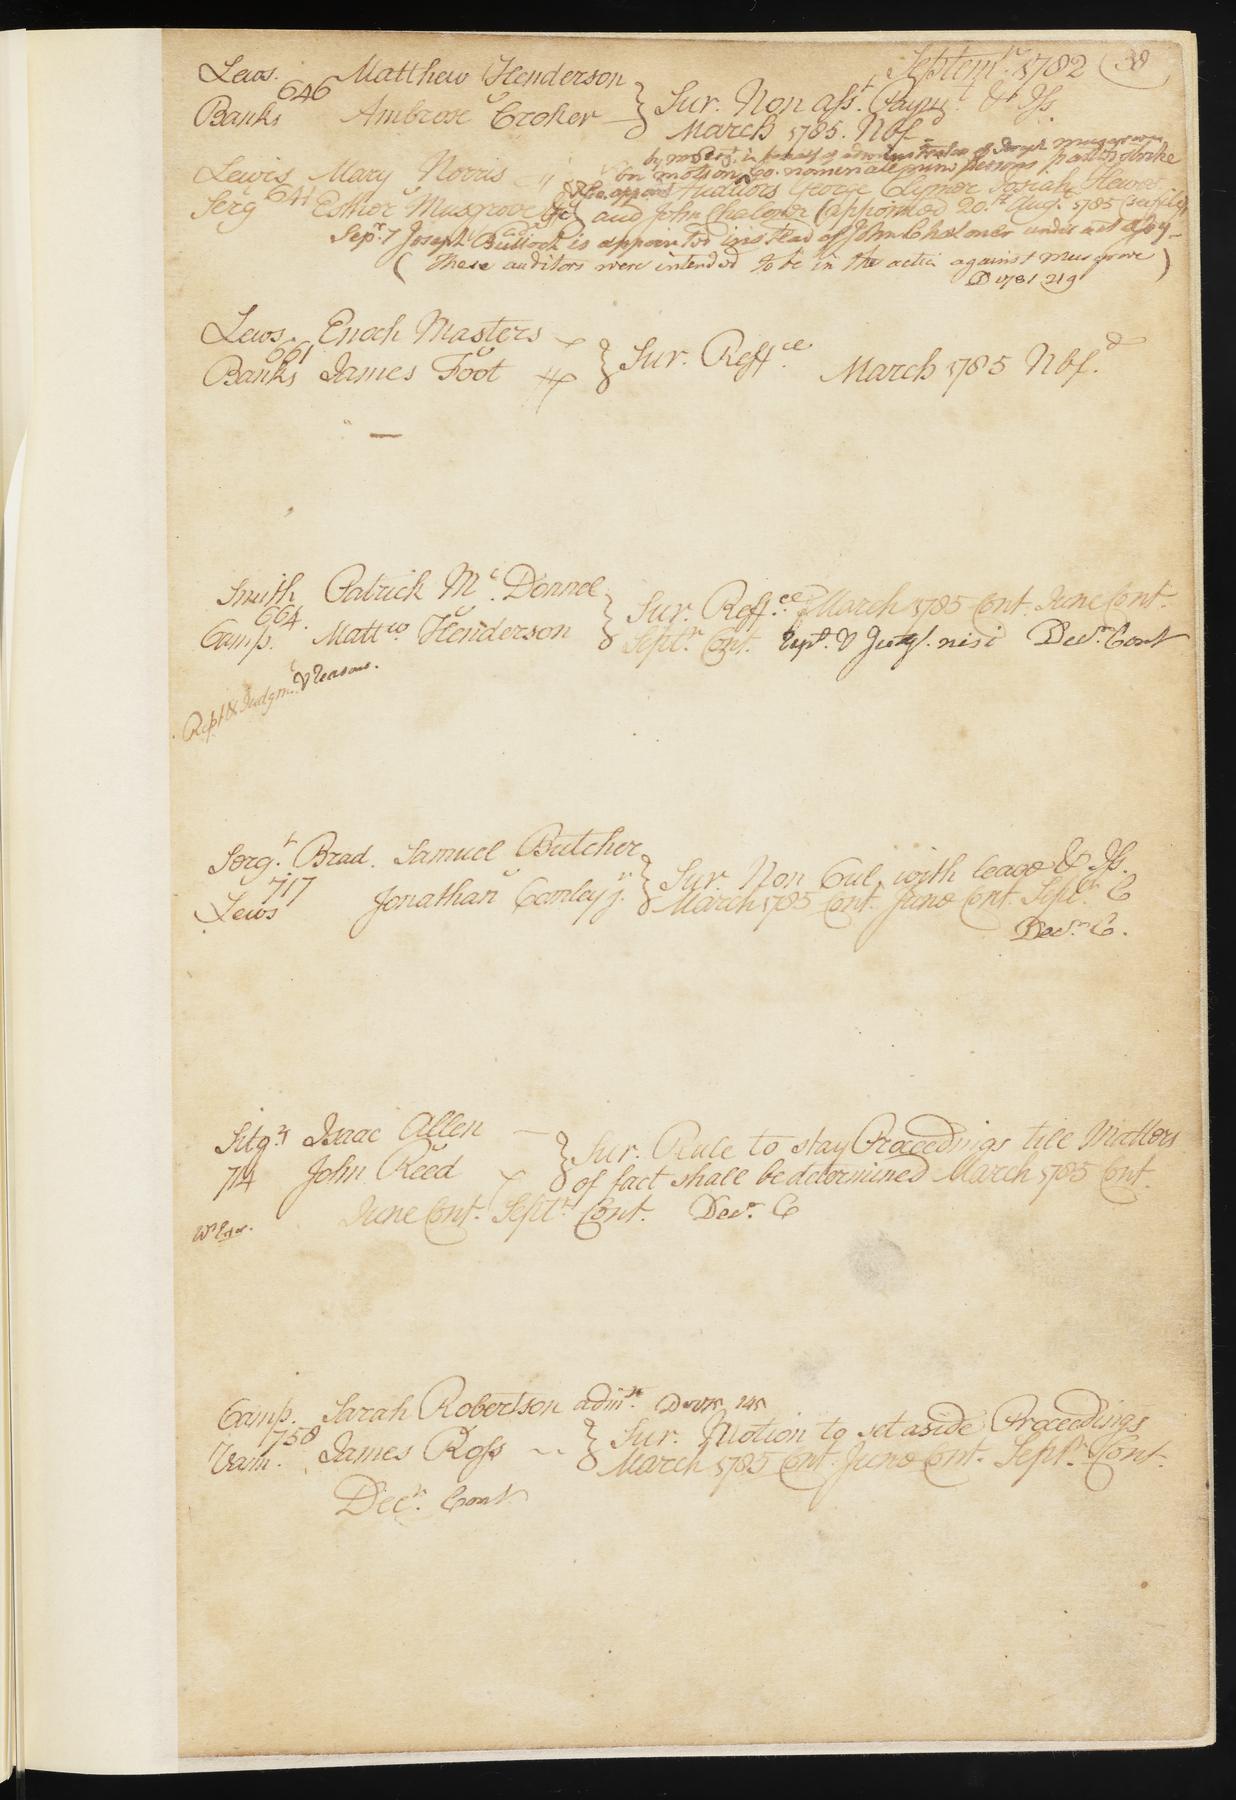 Septemr. 1782 38
Lews. Matthew Henderson
646 v
Banks Ambrose Croker } Sur. Non asst. Paymt. & Iss.
March 1785. Nbfd
Lewis Mary Norris
on motion Co. nominate persons part to strike
Serg 641 Esther Musgrove &c. Auditors George Clymer Josiah Hewes
and John Chaloner (appointed 20th. Augt. 1785
Sepr. 7 Joseph Bullock is appointed instead of John Chaloner
( These auditors were intended to be in the action against Musgrove )
D 1781 219
Lews. Enoch Masters
661 v
Banks James Foot } Sur. Reffce. March 1785 Nbf.d
Smith Patrick Mc. Donnel
664. v
Camp. Mattw Henderson } Sur. Reffce. March 1785 Cont. June Cont.
Septr. Cont. Rept. & Judgt. nisi Decr. Cont
Rept & Judgmt. & reasons.
Sergt. Brad. Samuel Butcher
717 v
Lews Jonathan Conley jr. } Sur. Non Cul with leave & Iss.
March 1785 Cont. June Cont. Septr. C
Decr. C.
Sitgs. Isaac Allen
v
714 John Reed } Sur. Rule to stay Proceedings till Matters
of fact shall be determined March 1785 Cont.
June Cont. Septr. Cont. Decr. C
Camp. Sarah Robertson admx.
758 v
Vann. James Ross } Sur. Motion to set aside Proceedings
March 1785 Cont. June Cont. Septr. Cont.
Decr. Cont